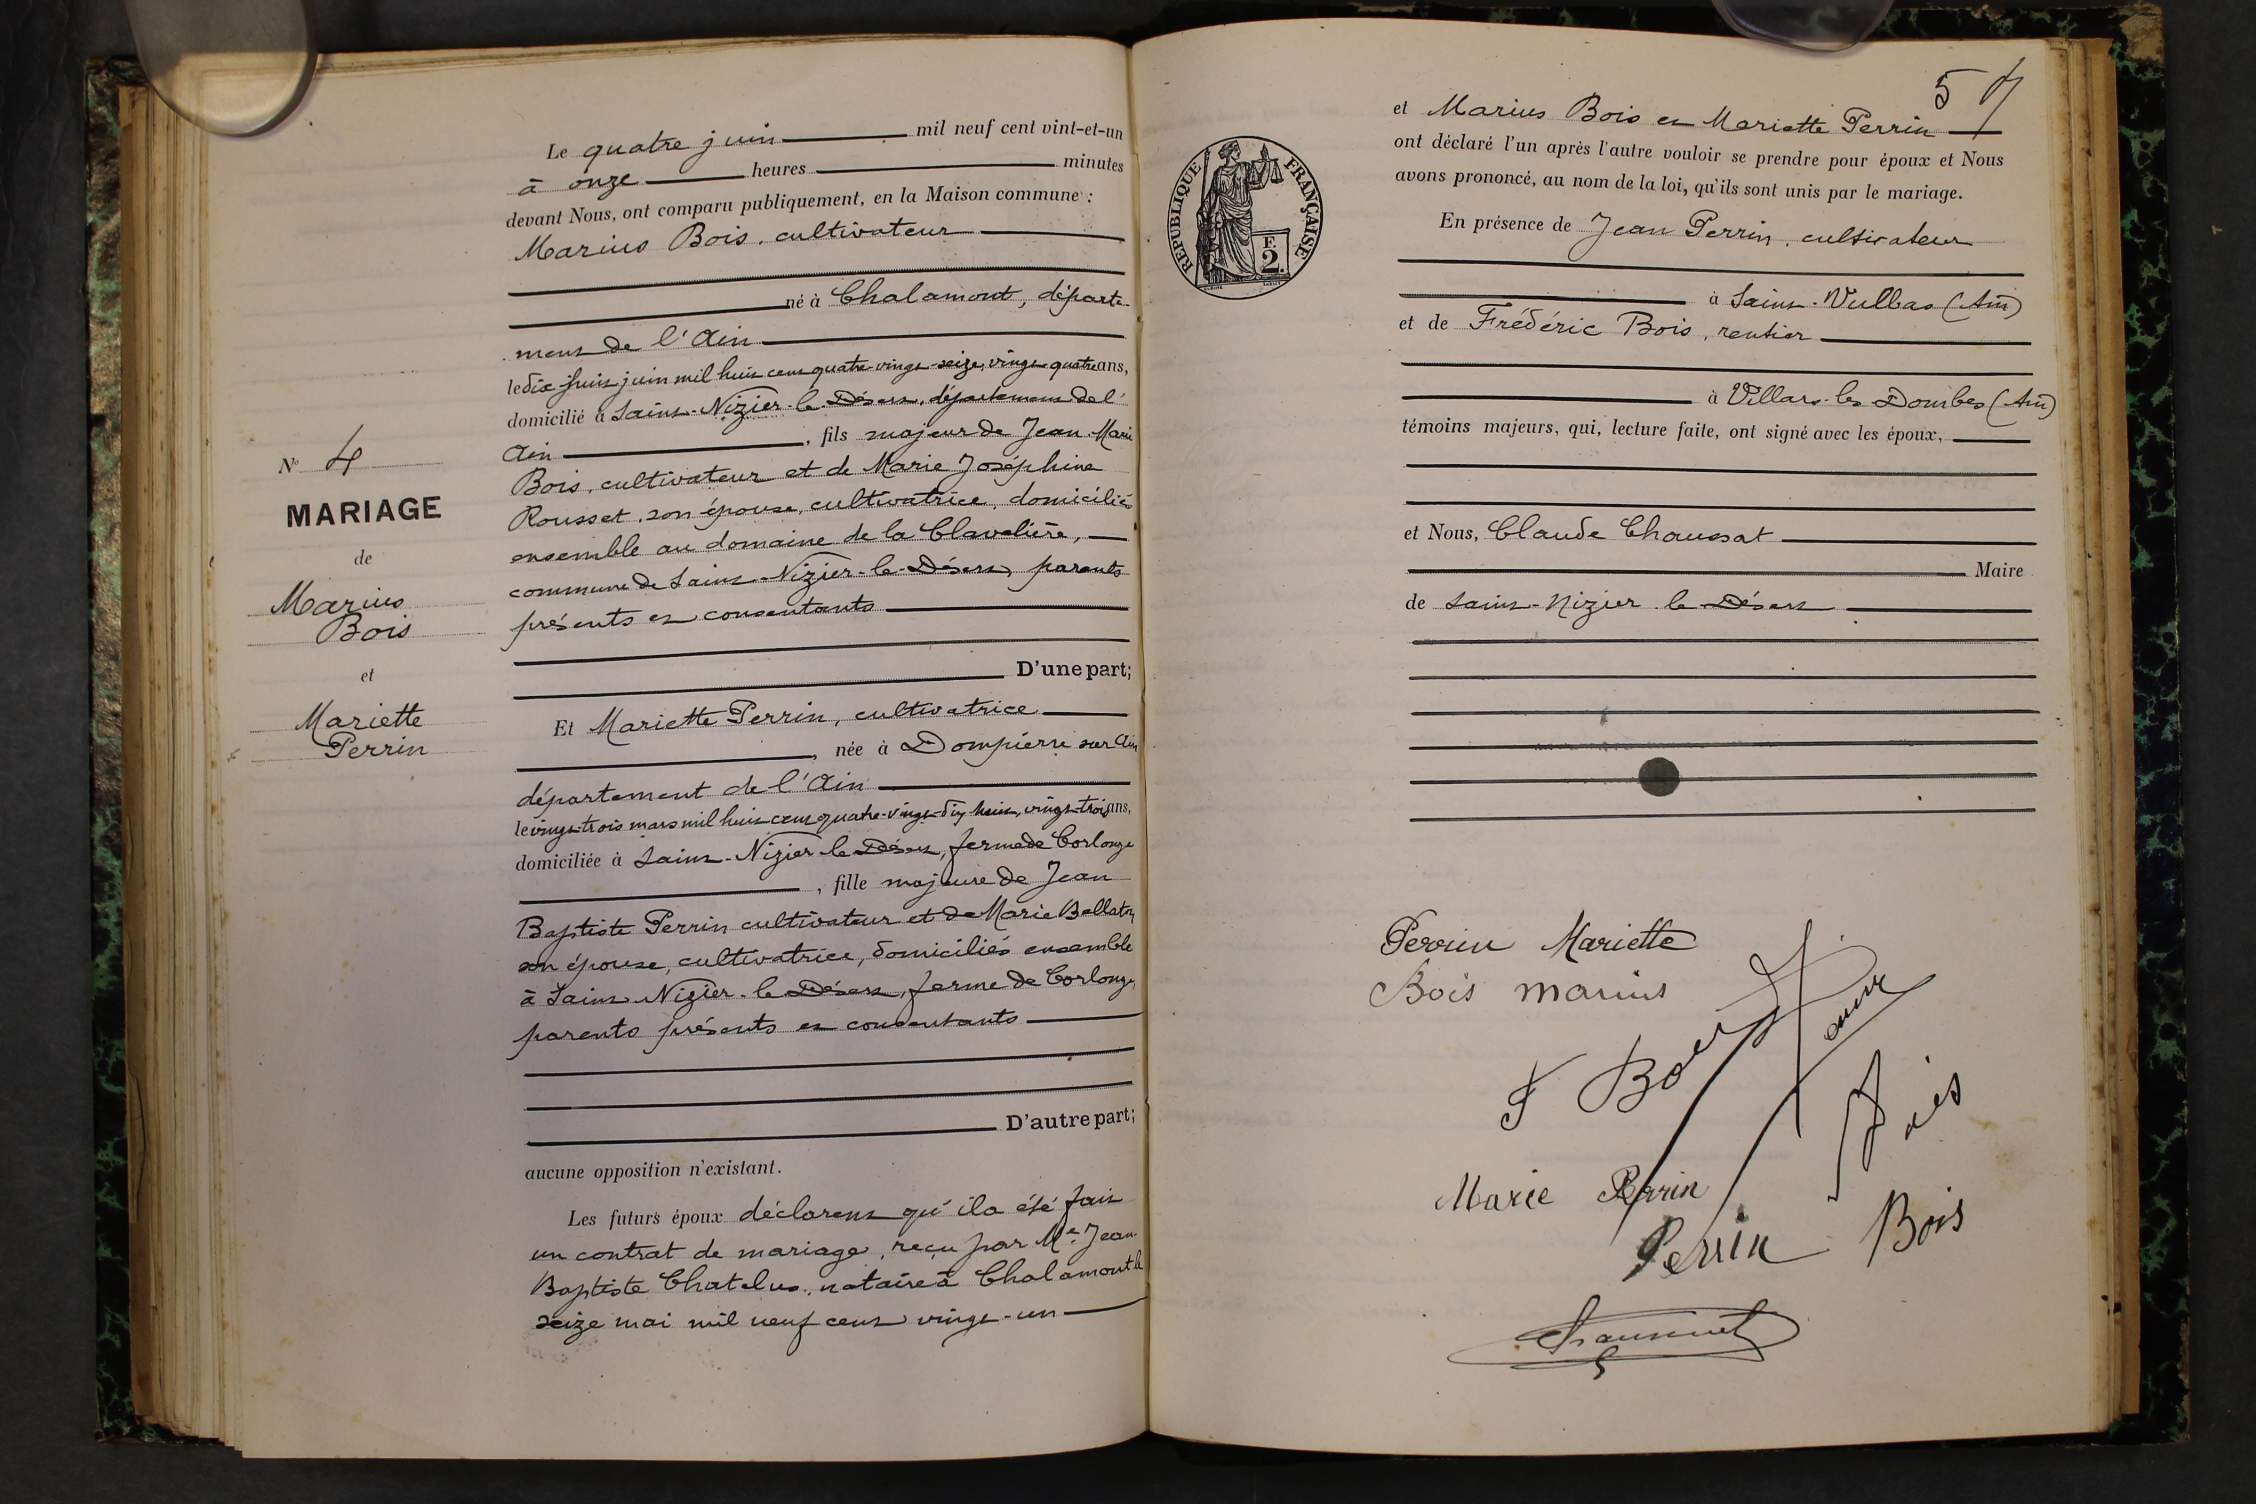 Le quatre juin mil neuf cent vint-et-un
à onze heures minutes
devant Nous, ont comparu publiquement, en la Maison commune :
Marius Bois, cultivateur
né à Chalamont, départe-
ment de l'Ain
le dix-huit juin mil huit cent quatre-vingt-seize, vingt-quatre ans,
domicilié à Saint-Nizier-le-Désert, département de l'
Ain, fils majeur de Jean-Marie
Bois, cultivateur et de Marie Joséphine
Rousset, son épouse, cultivatrice, domiciliés
ensemble au domaine de la Clavelière,
commune de Saint-Nizier-le-Désert, parents
présents et consentants
D'une part;
Et Mariette Perrin, cultivatrice
, née à Dompierre sur Ain
département de l'Ain
le vingt-trois mars mil huit cent quatre-vingt-dix-huit, vingt-trois ans,
domiciliée à Saint-Nizier-le-Désert, ferme de Corlonge
, fille majeure de Jean
Baptiste Perrin cultivateur et de Marie Bellaton
son épouse, cultivatrice, domiciliés ensemble
à Saint-Nizier-le-Désert, ferme de Corlonge,
parents présents et consentants
D'autre part;
aucune opposition n'existant.
Les futurs époux déclarent qu'il a été fait
un contrat de mariage, reçu par Me Jean
Baptiste Chatelus, notaire à Chalamont le
seize mai mil neuf cent vingt-un
No 4
MARIAGE
de
Marius
Bois
et
Mariette
Perrin
57
RÉPUBLIQUE FRANÇAISE
F.
2.
et Marius Bois et Mariette Perrin
ont déclaré l'un après l'autre vouloir se prendre pour époux et Nous
avons prononcé, au nom de la loi, qu'ils sont unis par le mariage.
En présence de Jean Perrin, cultivateur
à Saint-Vulbas (Ain)
et de Frédéric Bois, rentier
à Villars-les-Dombes (Ain)
témoins majeurs, qui, lecture faite, ont signé avec les époux,
et Nous, Claude Chaussat
Maire
de Saint-Nizier-le-Désert
Perrin Mariette
Bois Marius
F Bois
Marie Perrin
Perrin Bois